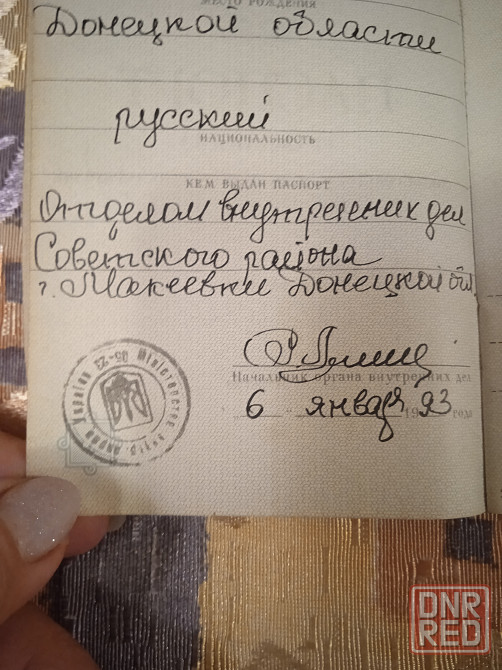 МЕСТО РОЖДЕНИЯ
Донецкой области
русский
НАЦИОНАЛЬНОСТЬ
КЕМ ВЫДАН ПАСПОРТ
Отделом внутренних дел
Советского района
г. Макеевки Донецкой обл
Начальник органа внутренних дел
6 января 1993 года
Міністерство внутр. справ України 05-23
DNR
RED